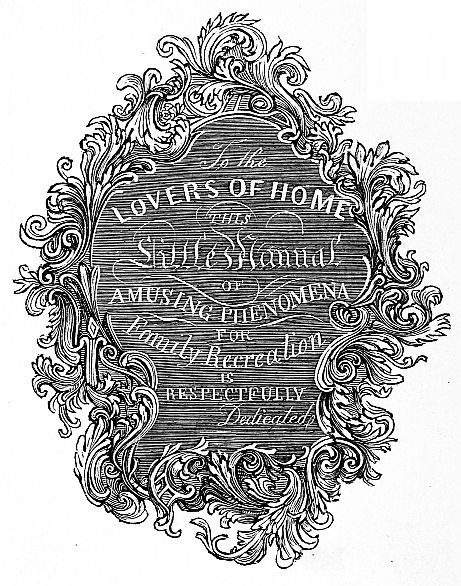 To the
LOVERS OF HOME
THIS
Little Manual
OF
AMUSING PHENOMENA
FOR
Family Recreation
IS
RESPECTFULLY
Dedicated